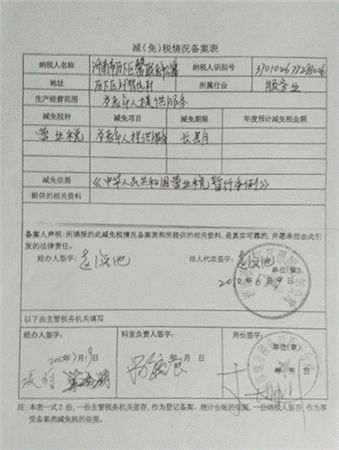 减(免)税情况备案表
纳税人名称 纳税人识别号
地址 历下区 所属行业 服务业
生产经营范围 为老年人提供服务
减免税种 减免项目 减免期限 年度预计减免税金额
营业税 为老年人提供服务 长期
减免依据 《中华人民共和国营业税暂行条例》
提供的相关资料
备案人声明:所填报的此减免税情况备案表和所提供的相关资料,是真实可靠的,并愿承担由此引
发的法律责任。
经办人签字: 法人代表签字:
单位(章)
2010年6月9日
以下由主管税务机关填写
经办人签字: 科室负责人签字: 局长签字:
单位(章)
年 月 日 年 月 日
注:本表一式2份,一份主管税务机关留存,作为登记备案、统计台帐的依据,一份纳税人留存,作为享
受备案类减免税的依据。